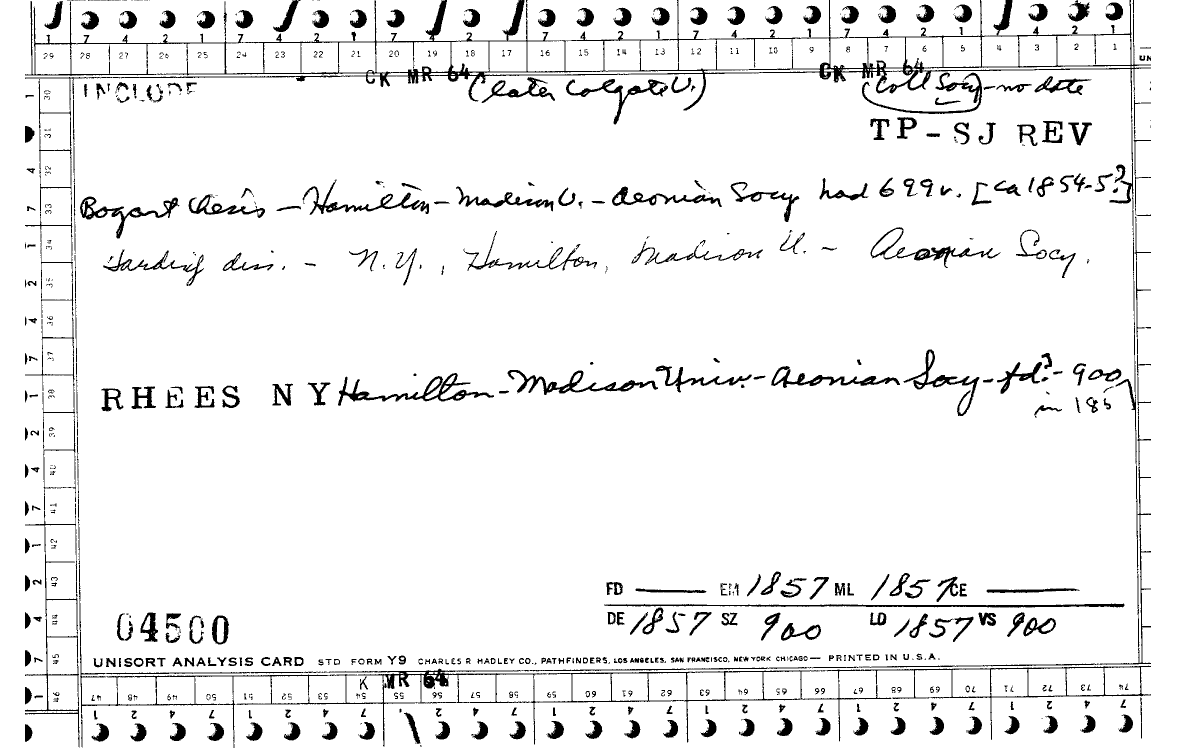 1 7 4 2 1 7 4 2 1 7 4 2 1 7 4 2 1 7 4 2 1 7 4 2 1 7 4 2 1
29 28 27 26 25 24 23 22 21 20 19 18 17 16 15 14 13 12 11 10 9 8 7 6 5 4 3 2 1
CK MR 64 CK MR 64
INCLUDE (later Colgate U.) (Coll Socy) - no date
TP-SJ REV
Bogart thesis - Hamilton - Madison U. - Aeonian Socy had 699v. [ca 1854-5?]
Harding diss. - N.Y., Hamilton, Madison U. - Aeonian Socy.
RHEES N Y Hamilton - Madison Univ. - Aeonian Socy - fd? - 900
in 185
FD — EM 1857 ML 1857 CE —
DE 1857 SZ 900 LD 1857 VS 900
04500
UNISORT ANALYSIS CARD STD FORM Y9 CHARLES R HADLEY CO., PATHFINDERS, LOS ANGELES, SAN FRANCISCO, NEW YORK CHICAGO — PRINTED IN U.S.A.
K MR 64
47 48 49 50 51 52 53 54 55 56 57 58 59 60 61 62 63 64 65 66 67 68 69 70 71 72 73 74
1 2 4 7 1 2 4 7 2 4 7 1 2 4 7 1 2 4 7 1 2 4 7 1 2 4 7
30
31
32
33
34
35
36
37
38
39
40
41
42
43
44
45
46